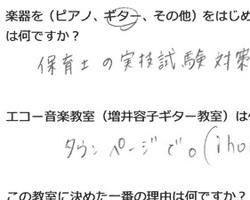 楽器を(ピアノ、ギター、その他)をはじめ
は何ですか？
保育士の実技試験対策
エコー音楽教室（増井容子ギター教室）は
タウンページで。(iho
この教室に決めた一番の理由は何ですか？